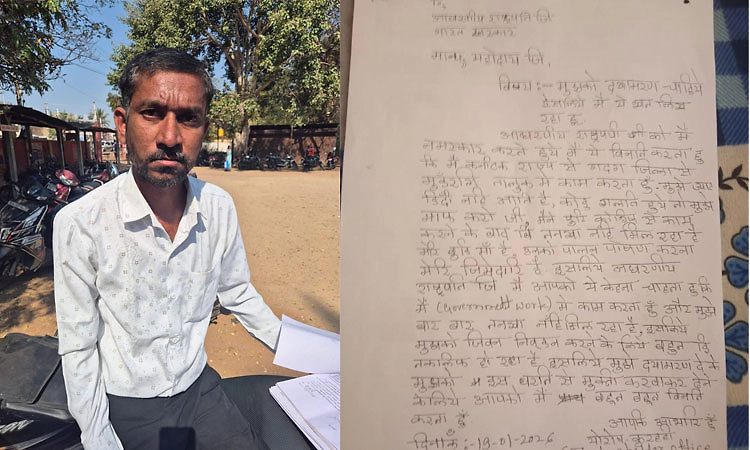 To,
आदरणीय राष्ट्रपति जि
भारत सरकार
मान्य महोदाय जि,
विषय :- मुझको दयामरण चाहिये
इसलिये मै ये खत लिख
रहा हू
आदरणीय राष्ट्रपती जी को मै
नमस्कार करते हुये मै ये विनति करता हु
कि मै कर्नाटक राज्य से गदग जिल्ला से
मुंडरगि तालुक मे काम करता हुँ, मुझे
हिंदी नहि आति है, कोइ गलति हुये तो मुझे
माफ करो जी, मैने पुरि कोशिष से काम
करने के बाद बि तनखा नहि मिल रहा है
मेरि बुढि माँ है, उनको पालन पोषण करना
मेरि जिम्मेदारि है इसलिये आदरणीय
राष्ट्रपति जि मै आपको ये कहना चाहता हु कि
मै (Government work) मे काम करता हुँ और मुझे
बार बार तनखा नहिमिल रहा है, इसलिये
मुझको जिवन निर्वहन करने के लिये बहुत हि
तकलिफ हो रहा है इसलिये मुझे दयामरण दे के
मुझको इस धरति से मुक्त करवाकर देने
केलिये आपको मै बहुत बहुत विनति
करता हुँ
आपकि आभारि हुँ
दिनांक :- 19-01-2026
Office